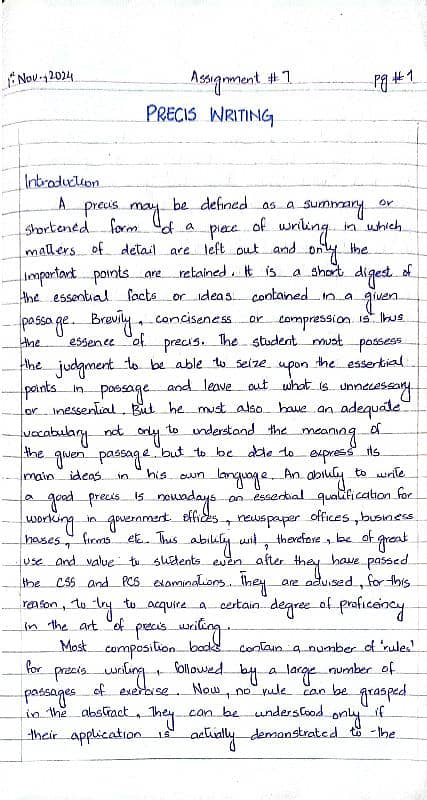 1st Nov., 2024 Assignment # 7 pg # 1
PRECIS WRITING
Introduction
A precis may be defined as a summary or
shortened form of a piece of writing in which
matters of detail are left out and only the
important points are retained. It is a short digest of
the essential facts or ideas contained in a given
passage. Brevity, conciseness or compression is thus
the essence of precis. The student must possess
the judgment to be able to seize upon the essential
points in passage and leave out what is unnecessary
or inessential. But he must also have an adequate
vocabulary not only to understand the meaning of
the given passage but to be able to express its
main ideas in his own language. An ability to write
a good precis is nowadays an essential qualification for
working in government offices, newspaper offices, business
houses, firms etc. Thus ability will, therefore, be of great
use and value to students even after they have passed
the CSS and PCS examinations. They are advised, for this
reason, to try to acquire a certain degree of proficency
in the art of precis writing.
Most composition books contain a number of 'rules'
for precis writing, followed by a large number of
passages of exercise. Now, no rule can be grasped
in the abstract, They can be understood only if
their application is actually demonstrated to the